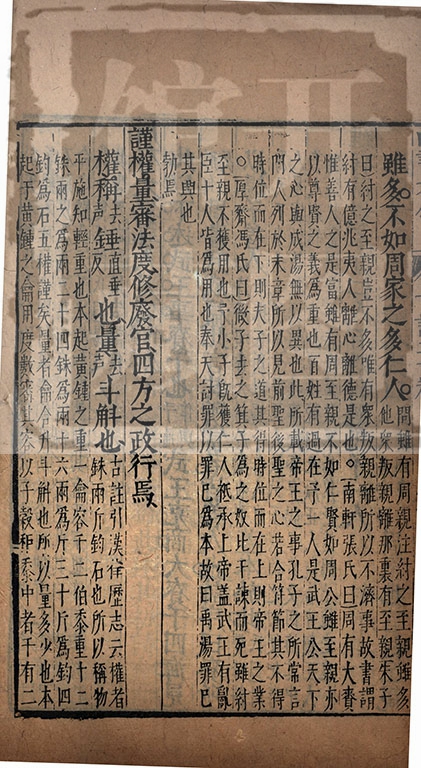 雖多不如周家之多仁人。問雖有周親注紂之至親雖多
他衆叛親離那裏有至親朱子
曰紂之至親豈不多唯有衆叛親離所以不濟事故書謂
紂有億兆夷人離心離德是也○南軒張氏曰周有大賚
惟善人之是富雖有周親不如仁賢如周公雖至親亦
以尊賢之義為重也百姓有過在予一人是武王公天下
之心與成湯無以異也此所載帝王之事孔子之所常言
門人列於末章所以見前聖後聖之心若合符節其不得
時位而在下則夫子之道其得時位而在上則帝王之業
○厚齋馮氏曰微子去之箕子為之奴比干諫而死雖紂
至親不獲用也予小子旣獲仁人祗承上帝蓋武王有亂
臣十人皆為用也奉天討罪以罪己為本故曰禹湯罪己
其興也
勃焉
謹權量審法度修廢官四方之政行焉
權稱去聲錘直垂反也量去聲斗斛也古註引漢律歷志云權者
銖兩斤鈞石也所以稱物
平施知輕重也本起黃鍾之重一龠容千二伯黍重十二
銖兩之為兩二十四銖為兩十六兩為斤三十斤為鈞四
鈞為石五權謹矣量者龠合升斗斛也所以量多少也本
起于黃鍾之龠用度數審其容以子穀秬黍中者千有二